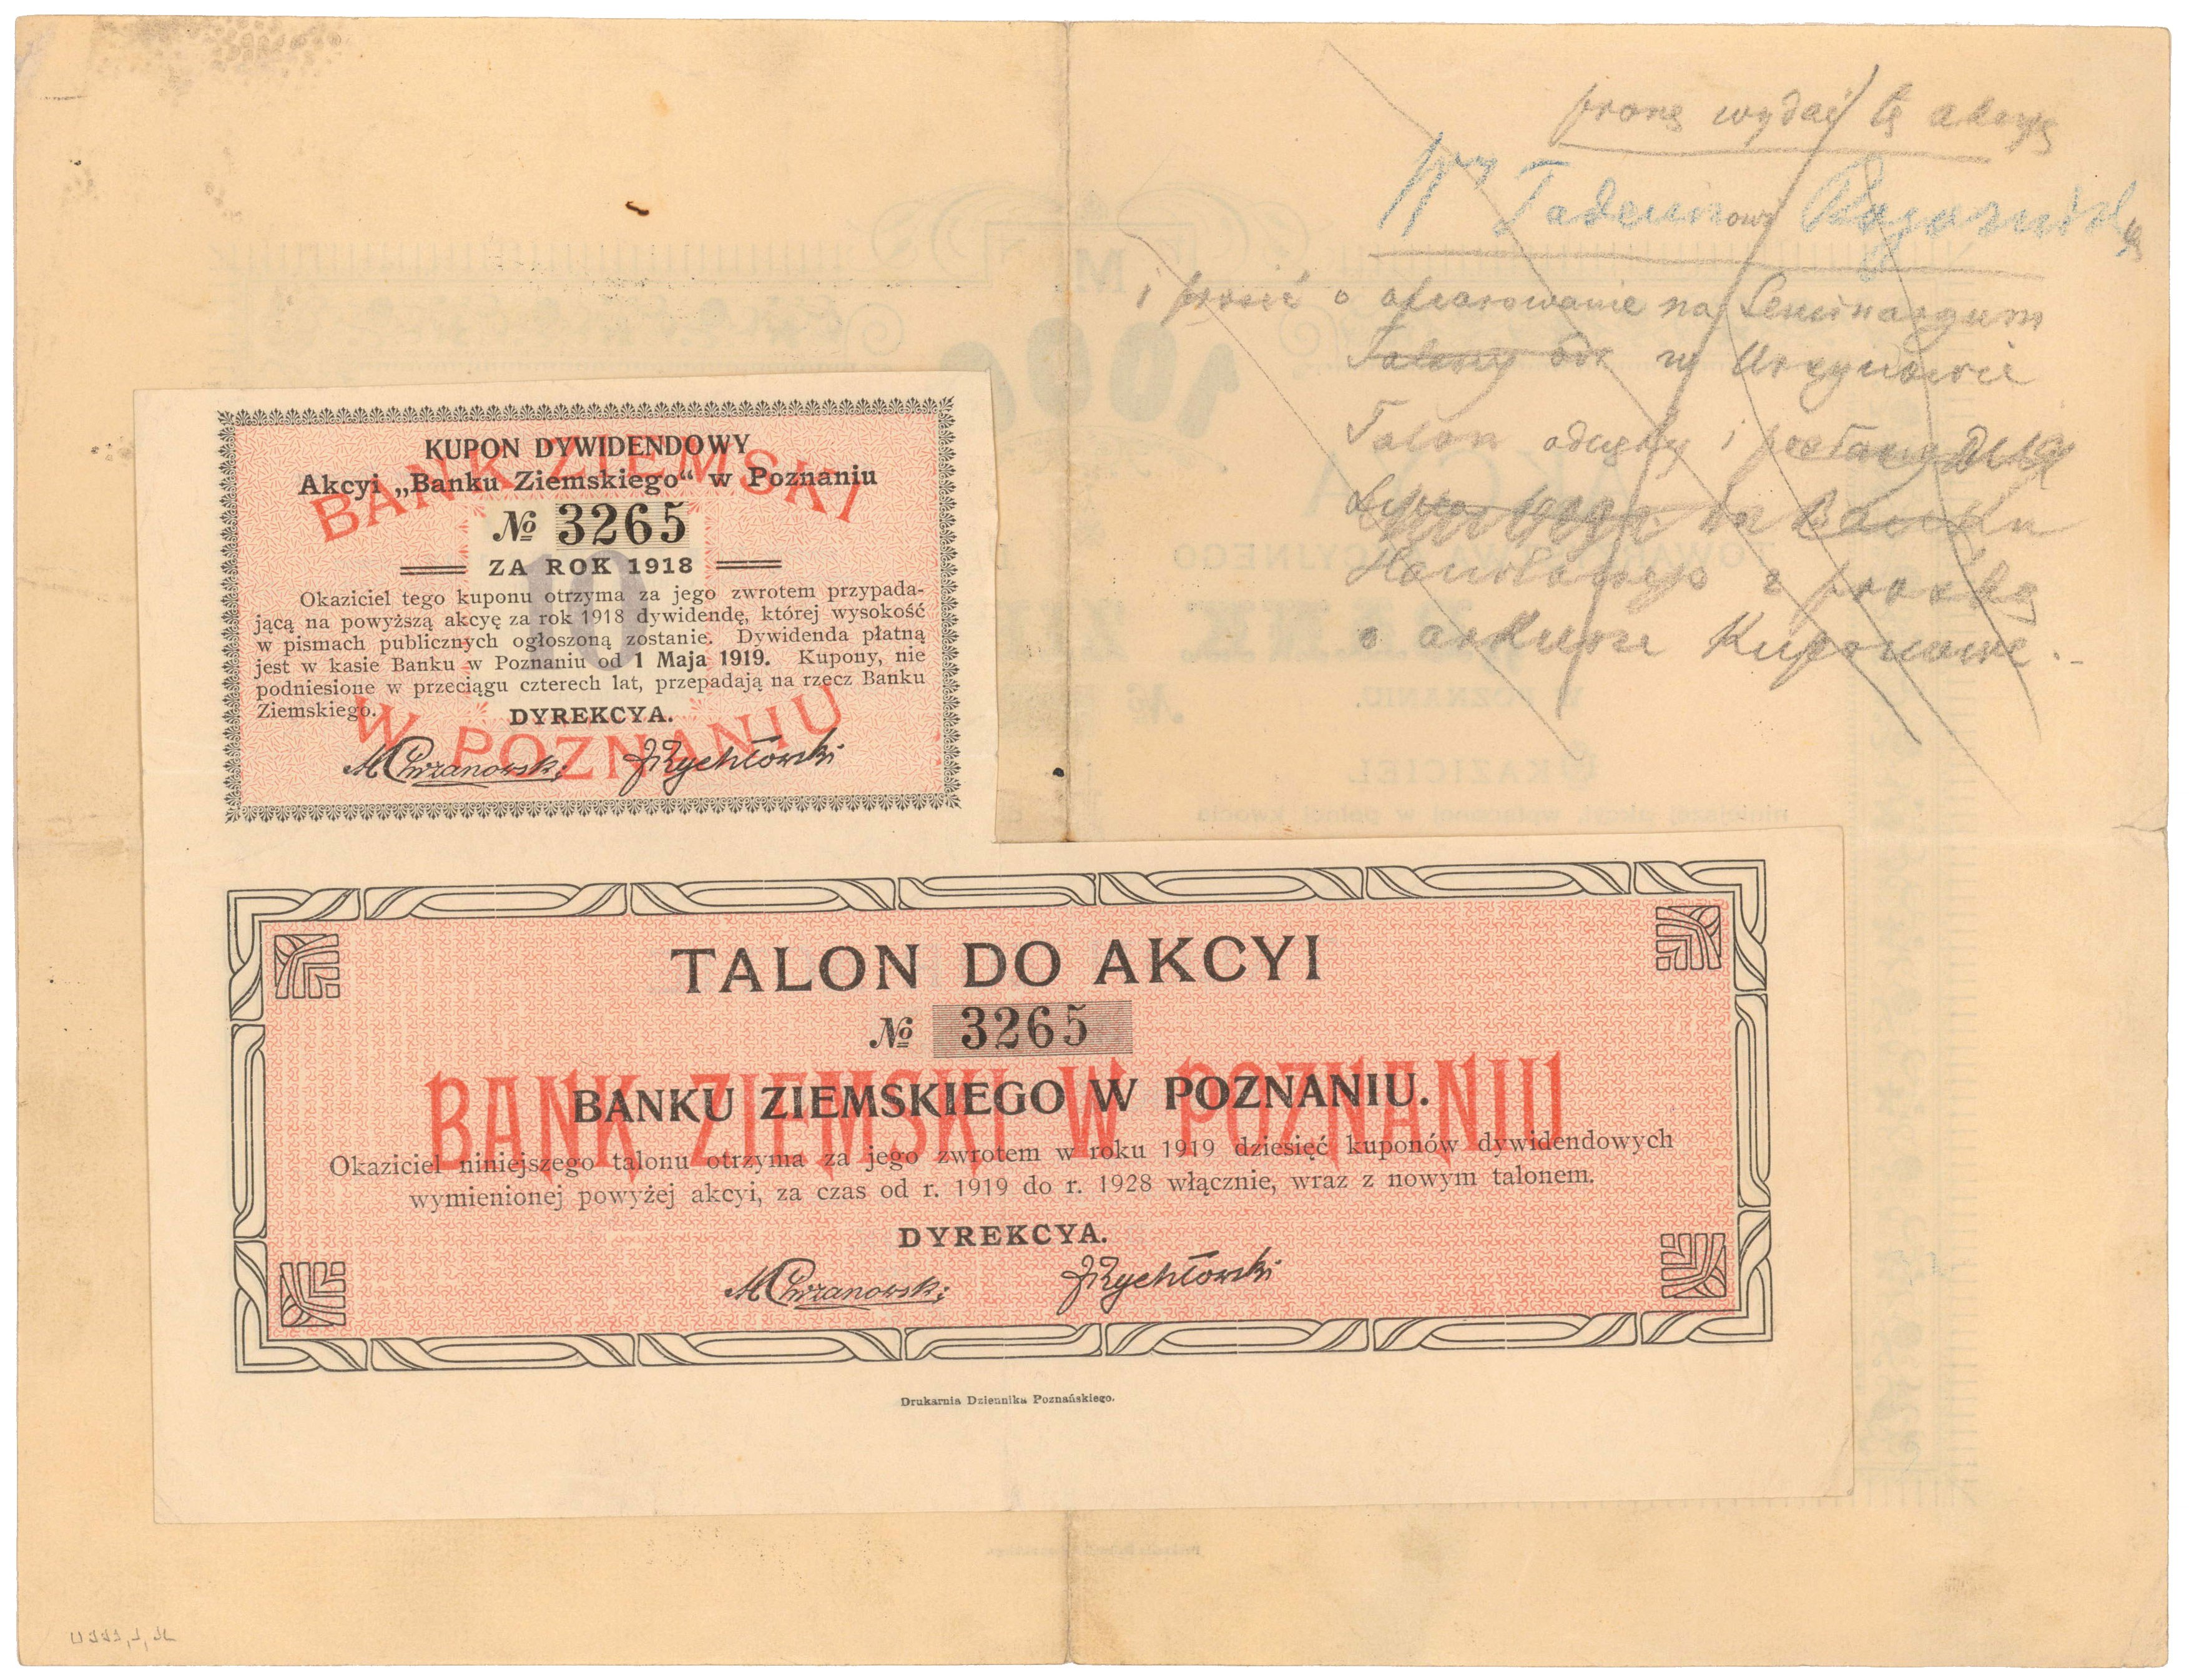 proszę wydać tę akcyę
Tadeuszowi
i prosić o ofiarowanie na Seminaryum
w Ursynowie
Talon odcięty i
Banku
Handlowego z prośbą
o arkusze Kuponowe.
KUPON DYWIDENDOWY
Akcyi „Banku Ziemskiego“ w Poznaniu
№ 3265
ZA ROK 1918
Okaziciel tego kuponu otrzyma za jego zwrotem przypada-
jącą na powyższą akcyę za rok 1918 dywidendę, której wysokość
w pismach publicznych ogłoszoną zostanie. Dywidenda płatną
jest w kasie Banku w Poznaniu od 1 Maja 1919. Kupony, nie
podniesione w przeciągu czterech lat, przepadają na rzecz Banku
Ziemskiego.
DYREKCYA.
M Chrzanowski JRychłowski
BANK ZIEMSKI
10
W POZNANIU
TALON DO AKCYI
№ 3265
BANKU ZIEMSKIEGO W POZNANIU.
BANK ZIEMSKI W POZNANIU
Okaziciel niniejszego talonu otrzyma za jego zwrotem w roku 1919 dziesięć kuponów dywidendowych
wymienionej powyżej akcyi, za czas od r. 1919 do r. 1928 włącznie, wraz z nowym talonem.
DYREKCYA.
M Chrzanowski JRychłowski
Drukarnia Dziennika Poznańskiego.